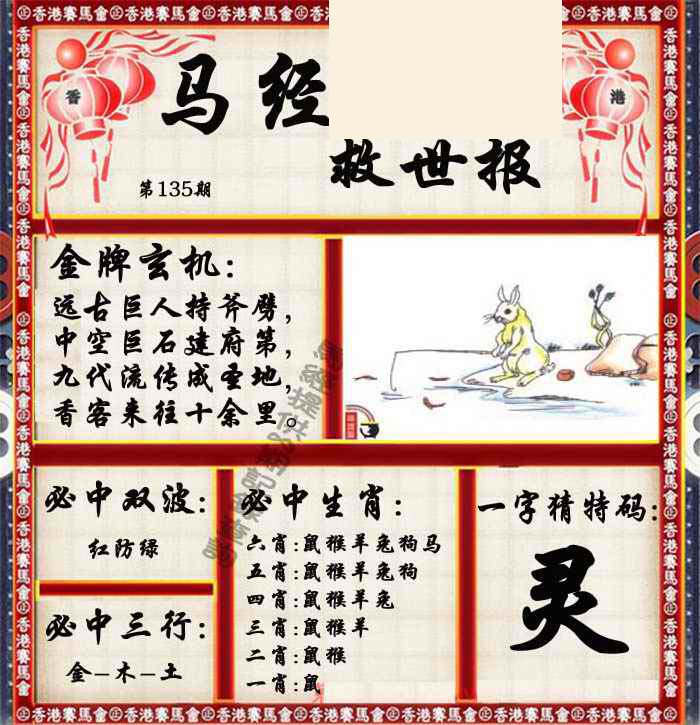 香港賽馬會 香港賽馬會 香港賽馬會 香港賽馬會 香港賽馬會 香港賽馬會
香 港
马经
救世报
第135期
金牌玄机:
远古巨人持斧劈，
中空巨石建府第，
九代流传成圣地，
香客来往十余里。
必中双波:
红防绿
必中三行:
金-木-土
必中生肖:
六肖:鼠猴羊兔狗马
五肖:鼠猴羊兔狗
四肖:鼠猴羊兔
三肖:鼠猴羊
二肖:鼠猴
一肖:鼠
一字猜特码:
灵
香港賽馬會 香港賽馬會 香港賽馬會 香港賽馬會 香港賽馬會 香港賽馬會